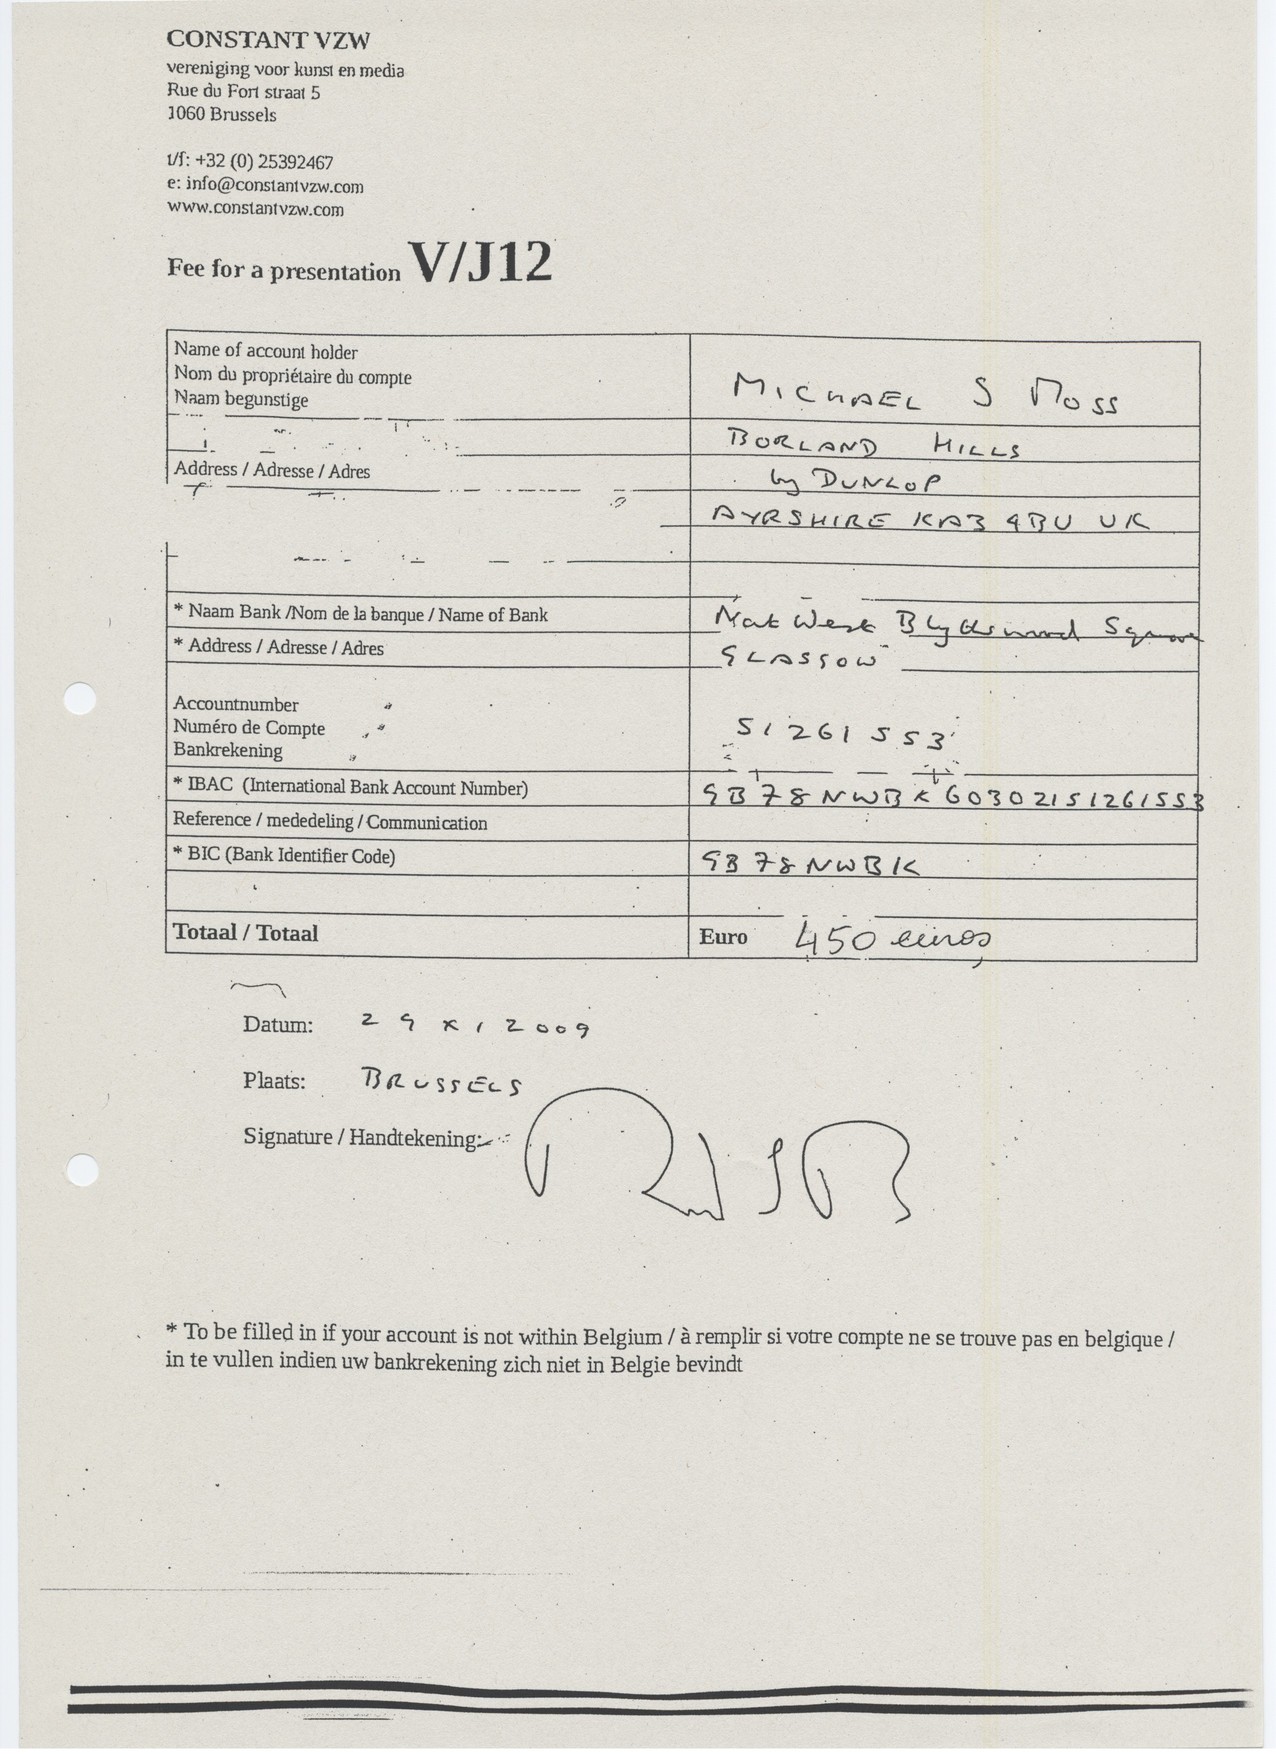 CONSTANT VZW
vereniging voor kunst en media
Rue du Fort straat 5
1060 Brussels
t/f: +32 (0) 25392467
e: info@constantvzw.com
www.constantvzw.com
Fee for a presentation V/J12
Name of account holder
Nom du propriétaire du compte
Naam begunstige
MICHAEL S MOSS
BORLAND HILLS
Address / Adresse / Adres
by DUNLOP
AYRSHIRE KA3 4BU UK
* Naam Bank /Nom de la banque / Name of Bank
Nat West Blythswood Square
* Address / Adresse / Adres
GLASGOW
Accountnumber "
Numéro de Compte "
Bankrekening "
51261553
* IBAC (International Bank Account Number)
GB78NWBK60302151261553
Reference / mededeling / Communication
* BIC (Bank Identifier Code)
GB78NWBK
Totaal / Totaal
Euro 450 euros
Datum: 29 XI 2009
Plaats: BRUSSELS
Signature / Handtekening:
* To be filled in if your account is not within Belgium / à remplir si votre compte ne se trouve pas en belgique /
in te vullen indien uw bankrekening zich niet in Belgie bevindt